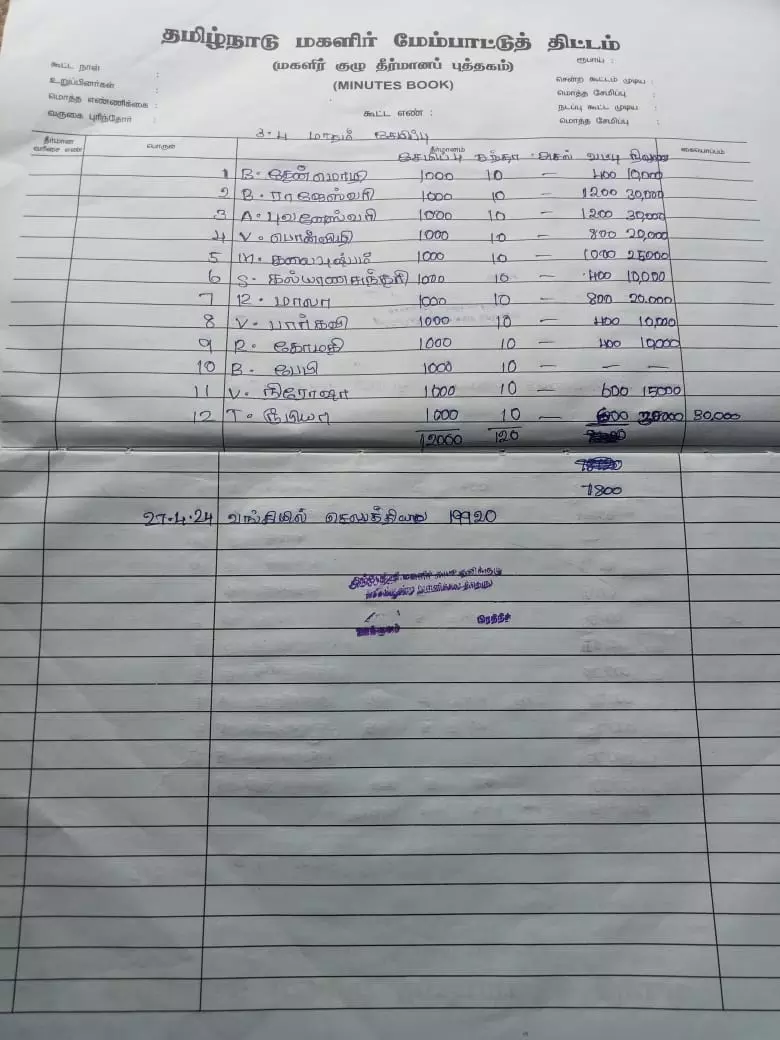 தமிழ்நாடு மகளிர் மேம்பாட்டுத் திட்டம்
(மகளிர் குழு தீர்மானப் புத்தகம்)
(MINUTES BOOK)
கூட்ட நாள் :
உறுப்பினர்கள் :
மொத்த எண்ணிக்கை :
வருகை புரிந்தோர் :
கூட்ட எண் :
ரூபாய் :
சென்ற கூட்டம் முடிய :
மொத்த சேமிப்பு :
நடப்பு கூட்ட முடிய :
மொத்த சேமிப்பு :
3.4 மாதம் சேமிப்பு
தீர்மான வரிசை எண் பொருள் தீர்மானம் கையொப்பம்
சேமிப்பு சந்தா அசல் வட்டி நிலுவை
1 B. தேன்மொழி 1000 10 — 400 10,000
2 B. ராஜேஸ்வரி 1000 10 — 1200 30,000
3 A. புவனேஸ்வரி 1000 10 — 1200 30,000
4 V. 1000 10 — 800 20,000
5 M. 1000 10 — 1000 25000
6 S. கல்யாணசுந்தரி 1000 10 — 400 10,000
7 R. மாலா 1000 10 — 800 20.000
8 V. பார்கவி 1000 10 — 400 10,000
9 R. கோமதி 1000 10 — 400 10,000
10 B. பேபி 1000 10 — — —
11 V. நிரோஷா 1000 10 — 600 15000
12 T. 1000 10 — 600 30,000
12000 120
7800
27.4.24 வங்கியில் செலுத்தியது 19920